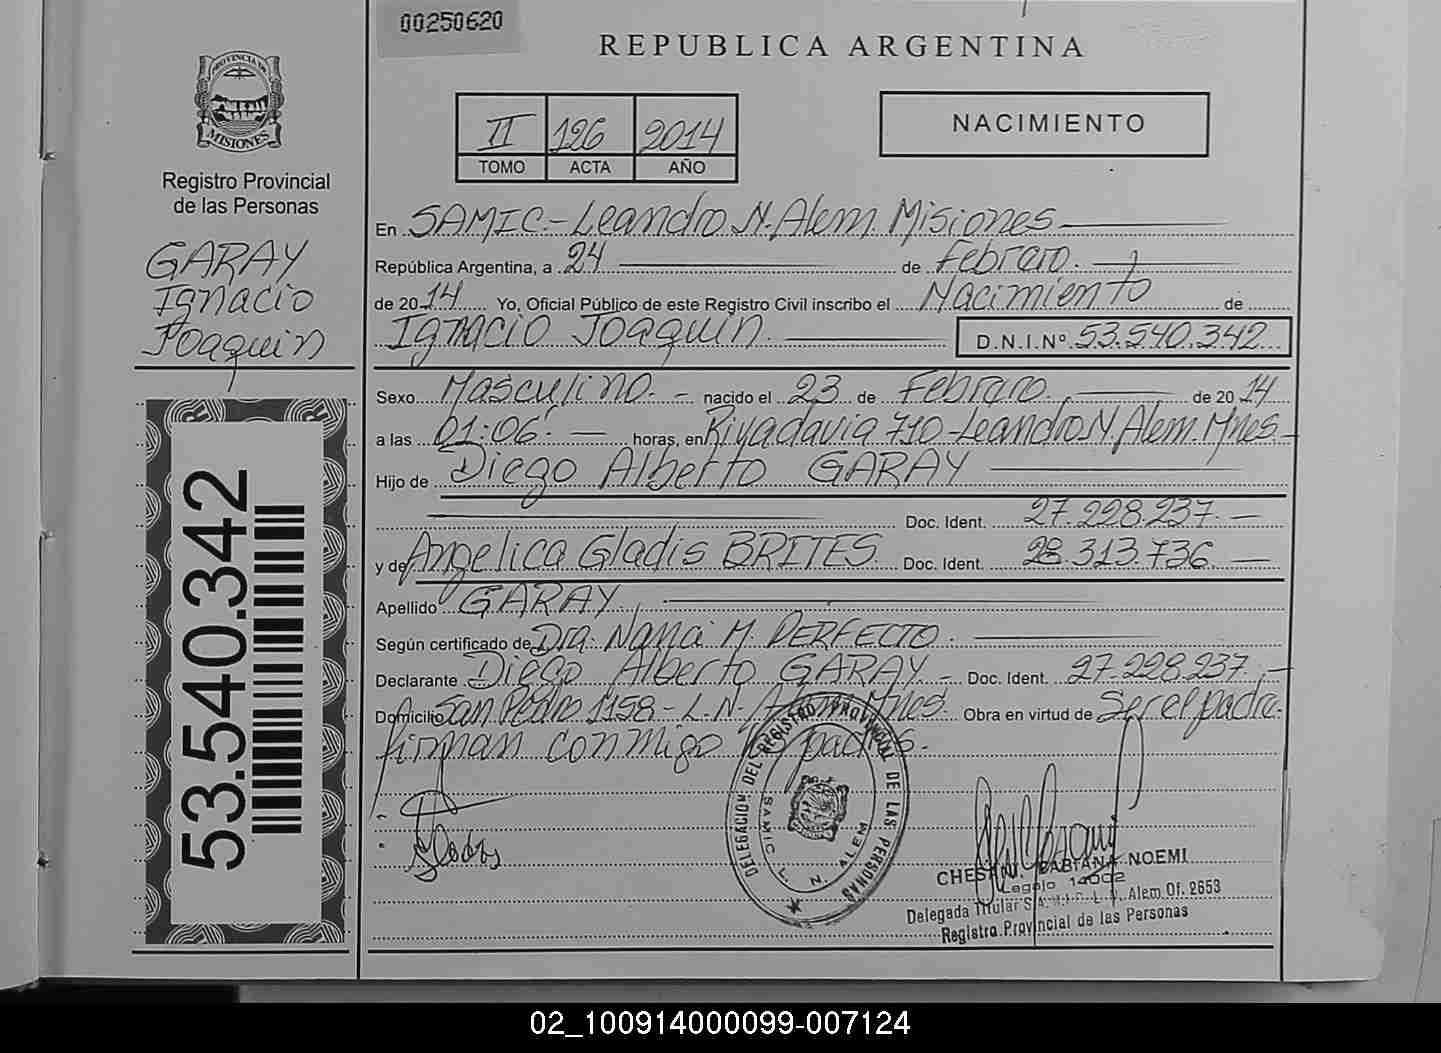 00250620
REPUBLICA ARGENTINA
PROVINCIA DE
MISIONES
Registro Provincial
de las Personas
GARAY
Ignacio
Joaquin
53.540.342
II 126 2014
TOMO ACTA AÑO
NACIMIENTO
En SAMIC.-Leandro N. Alem. Misiones
República Argentina, a 24 de Febrero.
de 2014 Yo, Oficial Público de este Registro Civil inscribo el Nacimiento de
Ignacio Joaquin. D.N.I.Nº. 53.540.342
Sexo Masculino.- nacido el 23 de Febrero. de 2014
a las 01:06.- horas, en Rivadavia 710-Leandro N. Alem. Mnes.-
Hijo de Diego Alberto GARAY
Doc. Ident. 27.228.237.-
y de Angelica Gladis BRITES. Doc. Ident. 28.313.736.-
Apellido GARAY.
Según certificado de Dra. Nanci M. PERFECTO.
Declarante Diego Alberto GARAY.- Doc. Ident. 27.228.237.-
Domicilio San Pedro 1158-L.N. Alem. Mnes. Obra en virtud de Ser el padre.
firman conmigo padres.
DELEGACION DEL REGISTRO PROVINCIAL DE LAS PERSONAS
SAMIC
L. N. ALEM
FABIANA NOEMI
Legajo 14002
Delegada Titular S.A.M.I.C. L.N. Alem Of. 2653
Registro Provincial de las Personas
02_100914000099-007124